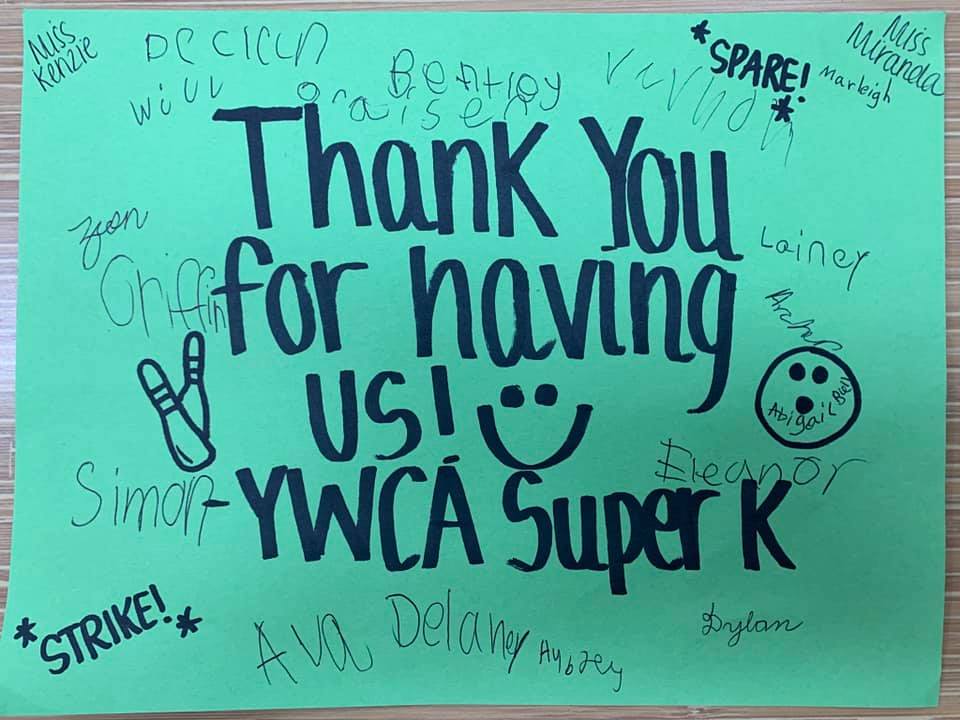 Miss
Kenzie
Declan
Will
Bentley
Graisen
*SPARE!*
Miss
Miranda
Marleigh
Thank You
for having
us!
-YWCA Super K
Zion
Griffin
Lainey
Archer
Abigail Bell
Simon
Eleanor
*STRIKE!*
Ava
Delaney
Aubrey
Dylan